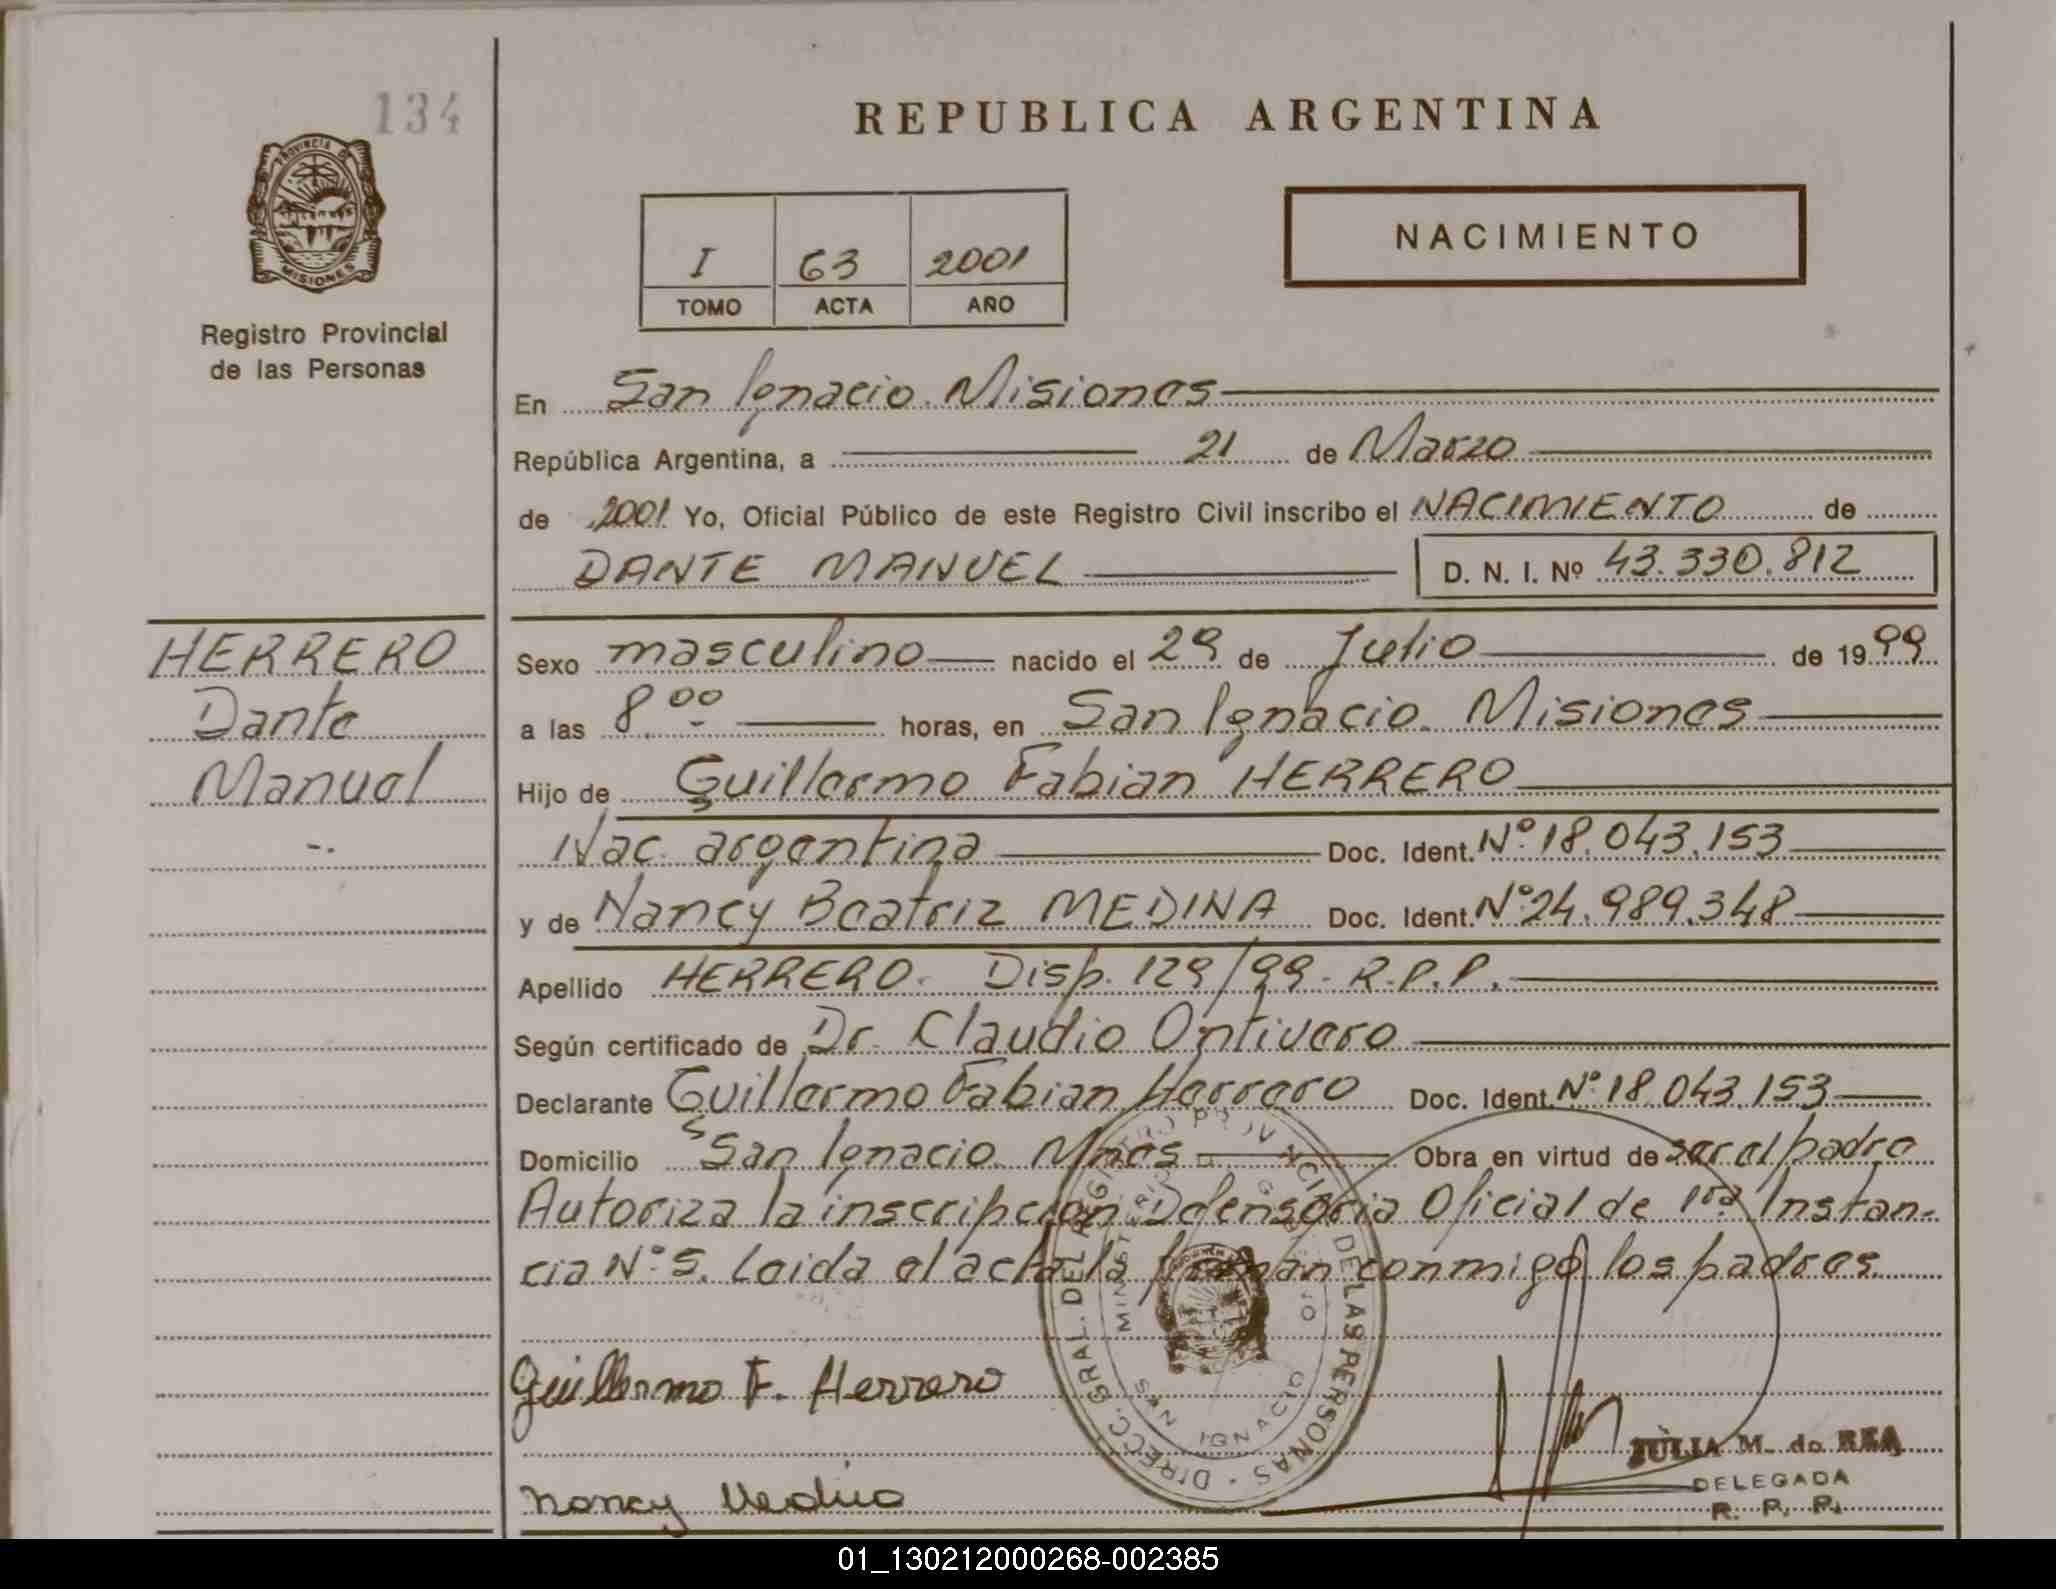 134
REPUBLICA ARGENTINA
PROVINCIA DE
MISIONES
Registro Provincial
de las Personas
I 63 2001
TOMO ACTA AÑO
NACIMIENTO
En San Ignacio. Misiones
República Argentina, a 21 de Marzo
de 2001 Yo, Oficial Público de este Registro Civil inscribo el NACIMIENTO de
DANTE MANUEL D. N. I. Nº 43.330.812
HERRERO
Dante
Manuel
-.
Sexo masculino nacido el 29 de Julio de 1999
a las 8.00 horas, en San Ignacio. Misiones
Hijo de Guillermo Fabian HERRERO
Nac. argentina Doc. Ident. Nº 18.043.153
y de Nancy Beatriz MEDINA Doc. Ident. Nº 24.989.348
Apellido HERRERO. Disp. 129/99. R.P.P.
Según certificado de Dr. Claudio Ontivero
Declarante Guillermo Fabian Herrero Doc. Ident. Nº 18.043.153
Domicilio San Ignacio. Mnes Obra en virtud de ser el padre
Autoriza la inscripcion Defensoria Oficial de 1ra Instan-
cia Nº 5. Leida el acta la firman conmigo los padres.
Guillermo F. Herrero
Nancy Medina
DIRECC. GRAL. DEL REGISTRO PROVINCIAL DE LAS PERSONAS
MINISTERIO DE GOBIERNO
SAN IGNACIO
JULIA M. de REA
DELEGADA
R. P. P.
01_130212000268-002385